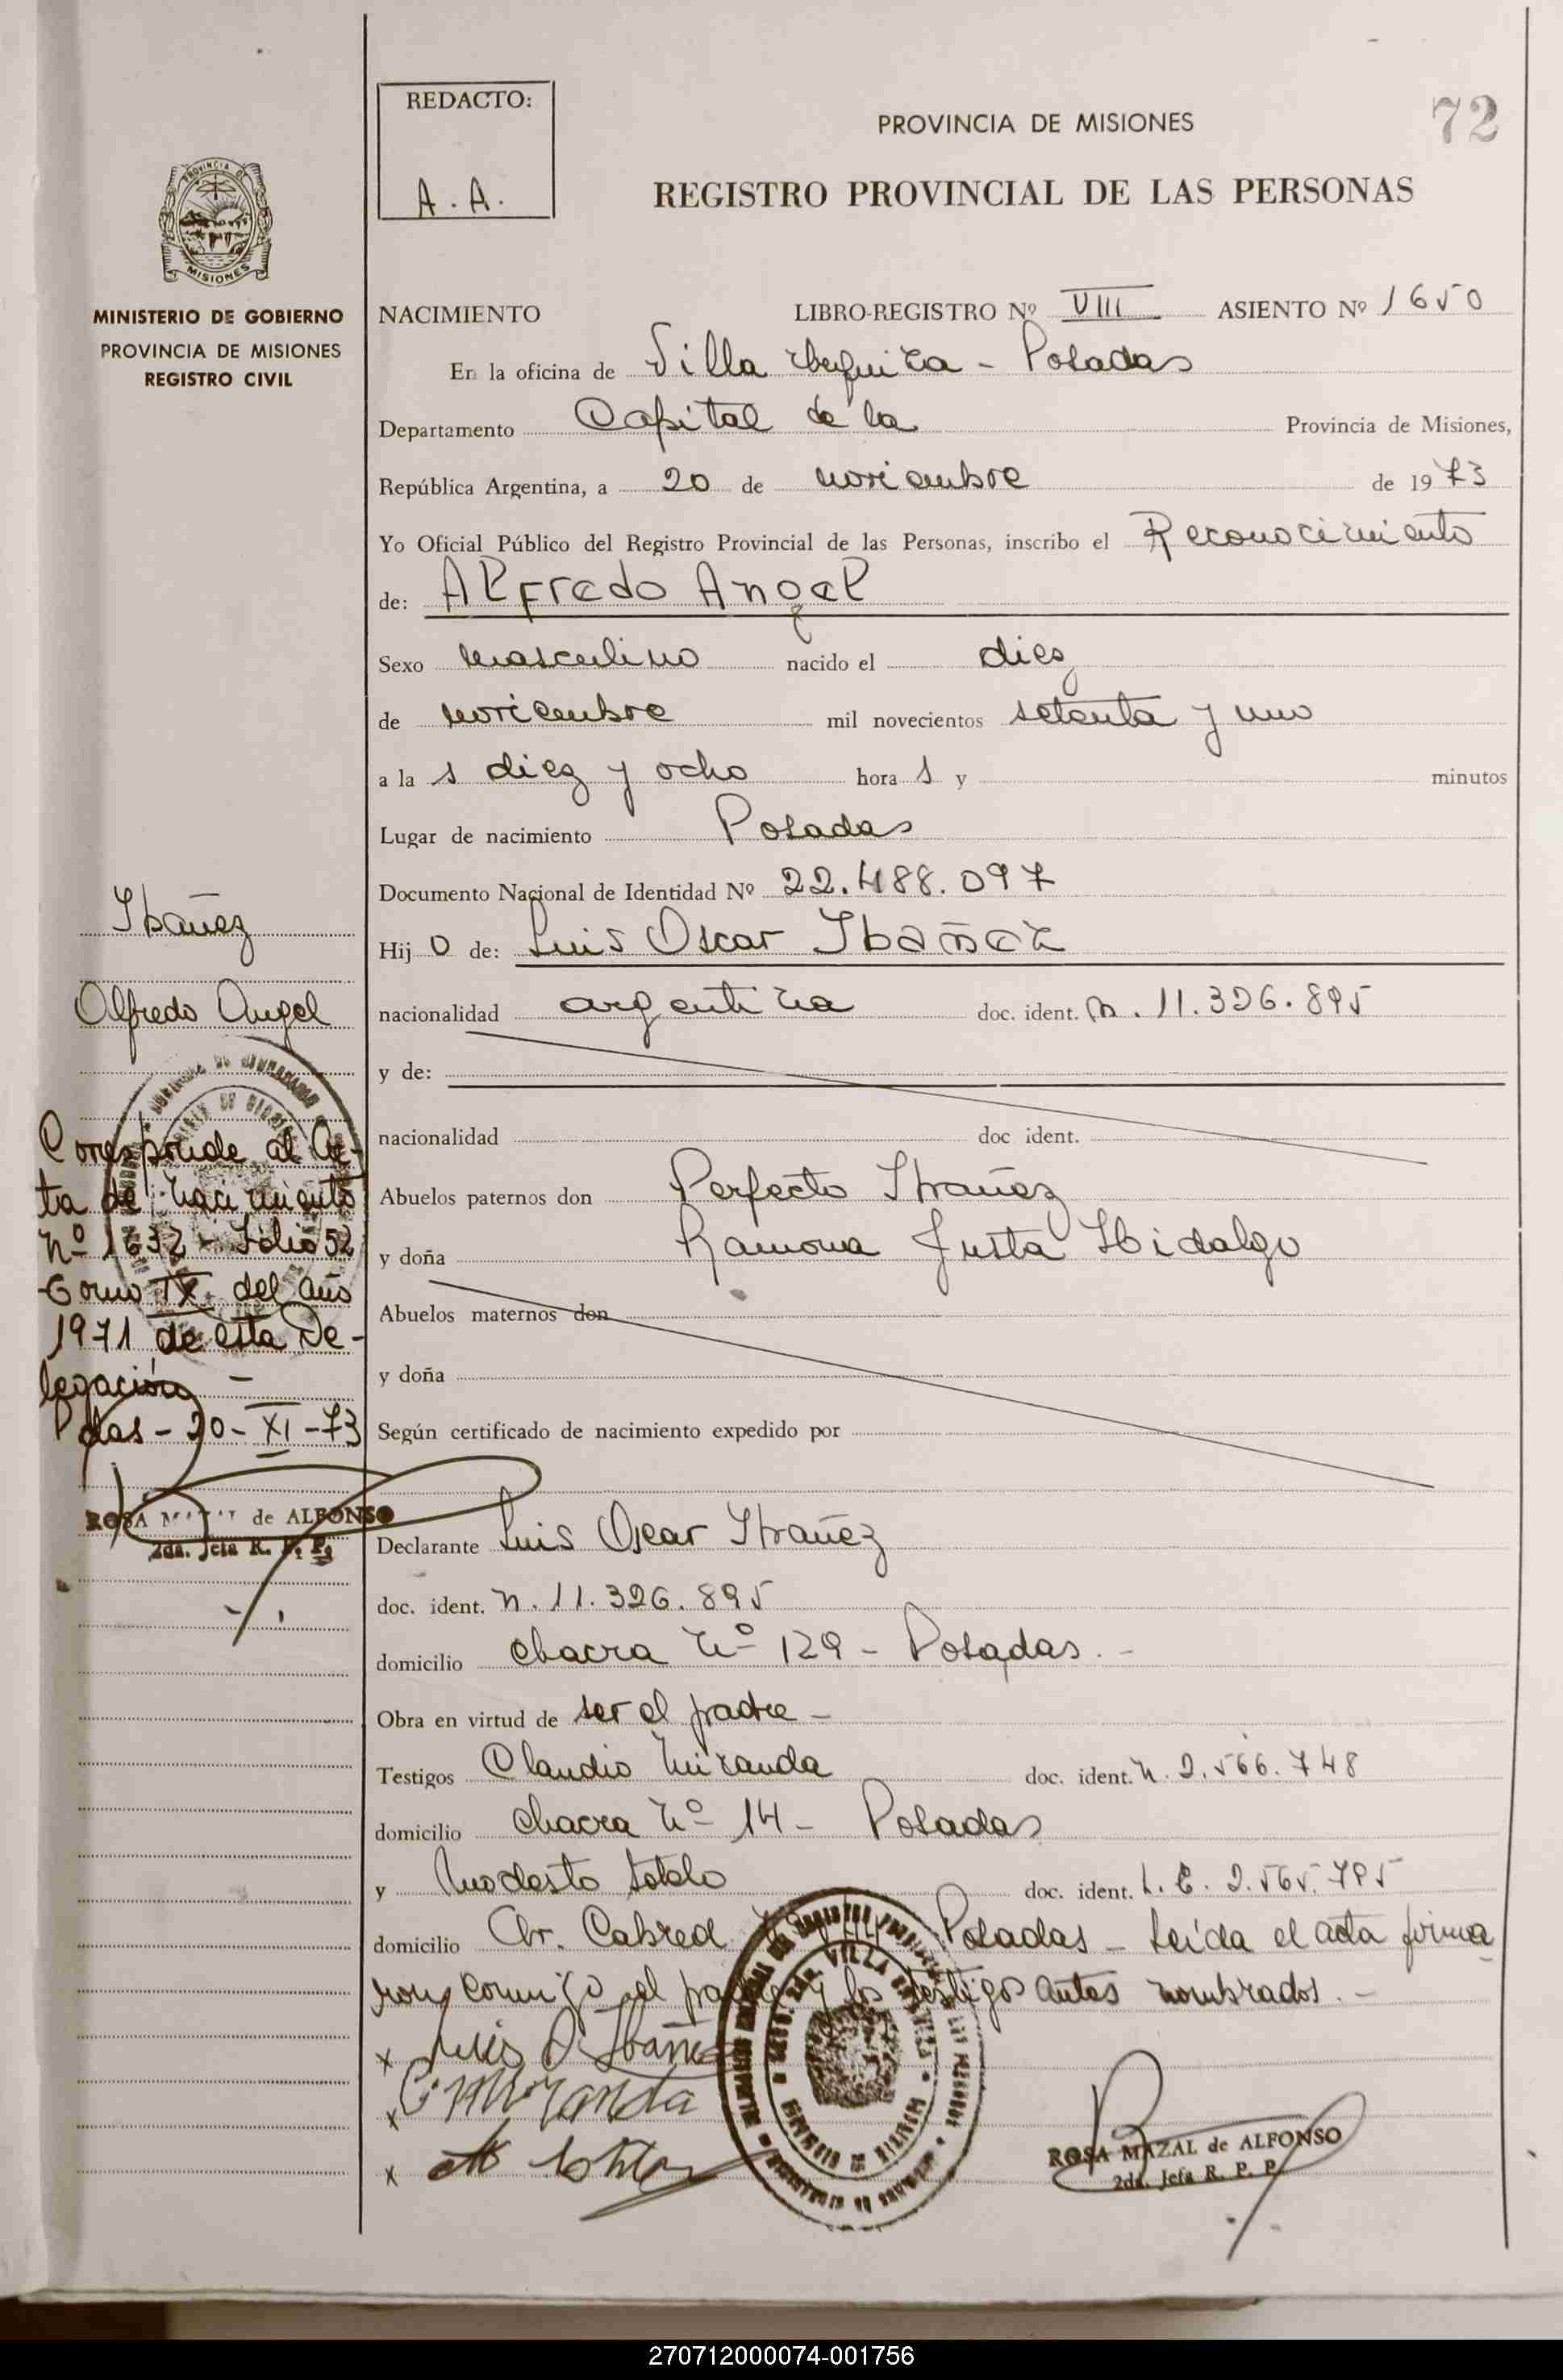 REDACTO:
A. A.
PROVINCIA DE MISIONES
72
REGISTRO PROVINCIAL DE LAS PERSONAS
PROVINCIA DE
MISIONES
MINISTERIO DE GOBIERNO
PROVINCIA DE MISIONES
REGISTRO CIVIL
NACIMIENTO LIBRO-REGISTRO Nº VIII ASIENTO Nº 1650
En la oficina de Villa Urquiza - Posadas
Departamento Capital de la Provincia de Misiones,
República Argentina, a 20 de noviembre de 1973
Yo Oficial Público del Registro Provincial de las Personas, inscribo el Reconocimiento
de: Alfredo Angel
Sexo masculino nacido el diez
de noviembre mil novecientos setenta y uno
a la s diez y ocho hora s y minutos
Lugar de nacimiento Posadas
Documento Nacional de Identidad Nº 22.488.097
Hij o de: Luis Oscar Ibañez
nacionalidad argentina doc. ident. M. 11.326.895
y de:
nacionalidad doc ident.
Abuelos paternos don Perfecto Ibañez
y doña Ramona Justa Hidalgo
Abuelos maternos don
y doña
Según certificado de nacimiento expedido por
Declarante Luis Oscar Ibañez
doc. ident. M. 11.326.895
domicilio chacra Nº 129 - Posadas. -
Obra en virtud de ser el padre -
Testigos Claudio Miranda doc. ident. M. 2.566.748
domicilio chacra Nº 14 - Posadas
y Modesto Sotelo doc. ident. L. E. 2.565.795
domicilio Chr. Cabred Posadas - Leída el acta firma
ron conmigo el padre y los testigos antes nombrados. -
x Luis O. Ibañez
x C. Miranda
x
ROSA MAZAL de ALFONSO
2da. Jefa R. P. P.
Ibañez
Alfredo Angel
Corresponde al Ac-
ta de nacimiento
Nº 1632 - Folio 52
Tomo IX del año
1971 de esta De-
legación -
Pdas - 20 - XI - 73
ROSA MAZAL de ALFONSO
2da. Jefa R. P. P.
270712000074-001756